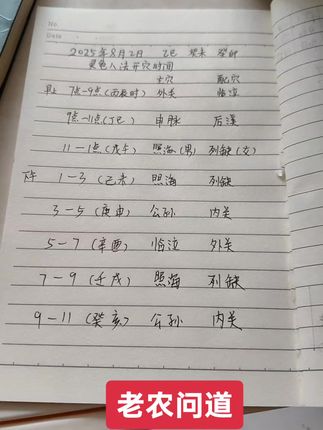 No.
Date
2025年8月2日 乙巳 癸未 癸卯
灵龟八法开穴时间
主穴 配穴
7点-9点(丙辰时) 外关 临泣
9点-11点(丁巳) 申脉 后溪
11-1点(戊午) 照海(男) 列缺(女)
下午 1-3(己未) 照海 列缺
3-5(庚申) 公孙 内关
5-7(辛酉) 临泣 外关
7-9(壬戌) 照海 列缺
9-11(癸亥) 公孙 内关
老农问道